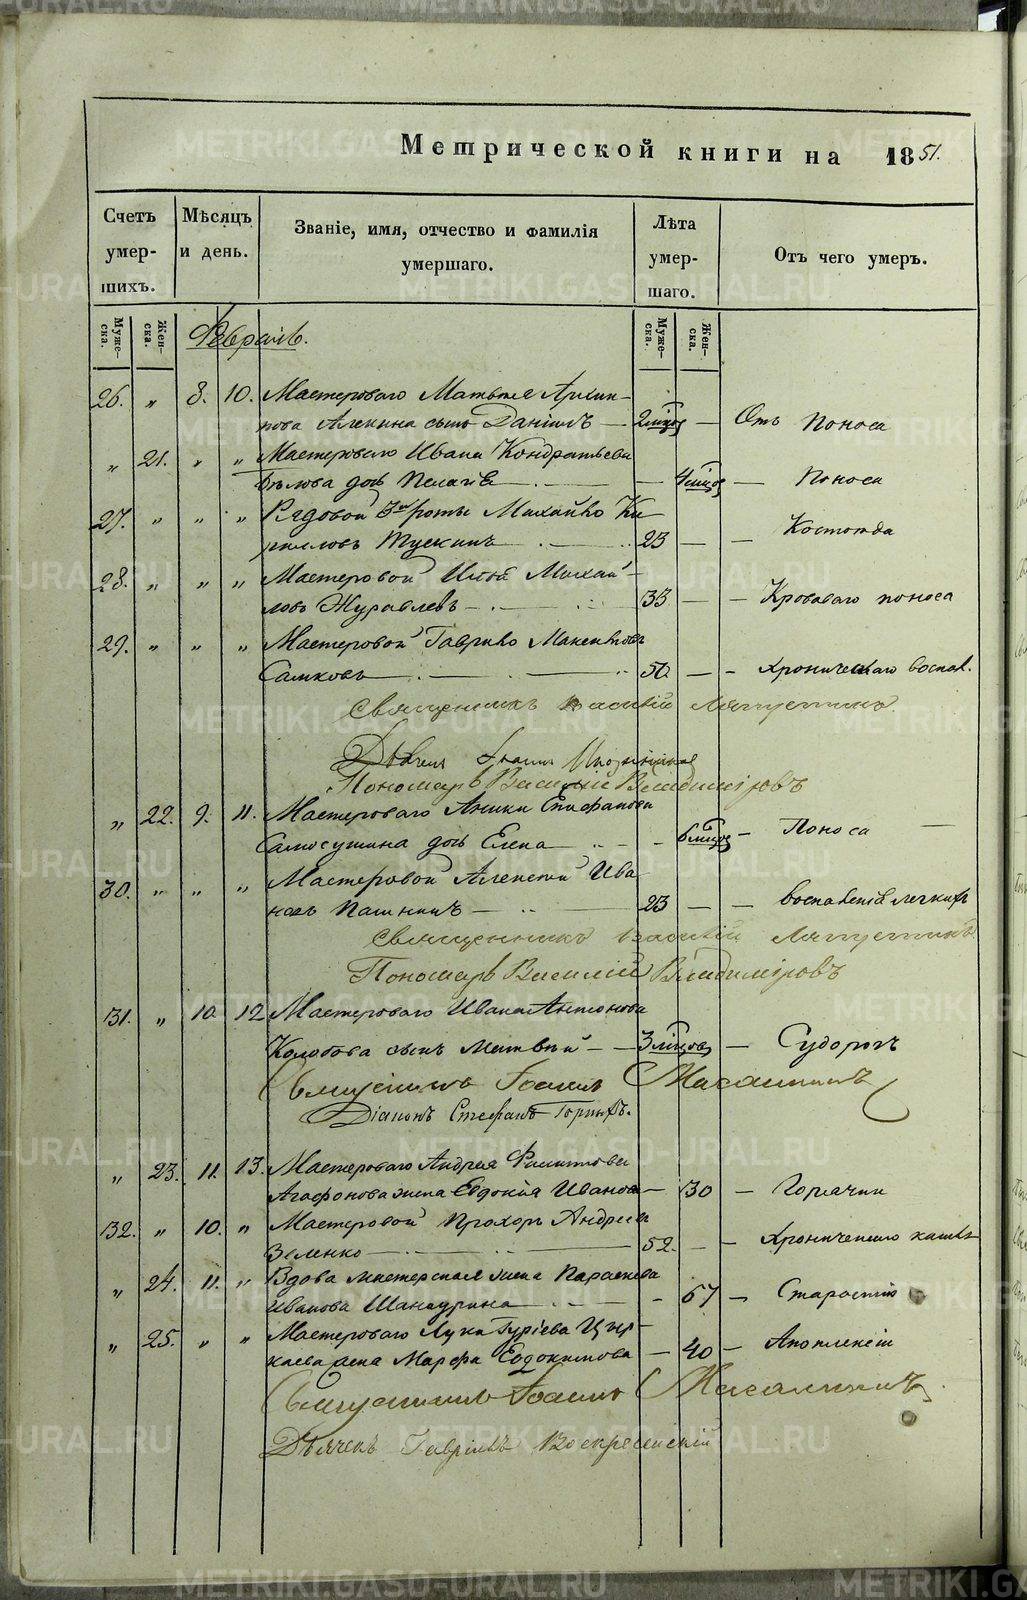 Метрической книги на 1851.
Счетъ умершихъ.
Мѣсяцъ и день.
Званіе, имя, отчество и фамилія умершаго.
Лѣта умершаго.
Отъ чего умеръ.
Муже-ска.
Жен-ска.
Муже-ска.
Жен-ска.
Февраль.
26. „ 8. 10. Мастероваго Матвѣя Архип-
пова сынъ Даніилъ — 2 мѣсяц — Отъ Поноса
„ 21. „ „ Мастероваго Ивана Кондратьева
Бѣлова дочь Пелагія — 4 мѣсяц — Поноса
27. „ „ „ Рядовой 3й роты Михайло Ки-
рилловъ — 23 — — Костоѣда
28. „ „ „ Мастеровой Илья Михай-
ловъ Журавлевъ — 33 — — Кроваваго поноса
29. „ „ „ Мастеровой Гаврило Максимовъ
— 50. — — хроническаго воспал.
Священникъ Василій
Дьячекъ Іоаннъ
Пономарь Василій Владиміровъ
„ 22. 9. 11. Мастероваго Аники Епифанова
Самосушина дочь Елена — 6 мѣсяц — Поноса —
30. „ „ „ Мастеровой Алексѣй Ива-
новъ Пашнинъ — 23 — — воспаленія легкихъ
Священникъ Василій
Пономарь Василій Владиміровъ
31. „ 10. 12. Мастероваго Ивана Антонова
Колобова сынъ Матвѣй — 3 мѣсяцовъ — Судорогъ
Священникъ Іоаннъ
Діаконъ Стефанъ Горныхъ.
„ 23. 11. 13. Мастероваго Андрея Филиппова
Агафонова жена Евдокія Иванова — 30 — Горячки
32. „ 10. „ Мастеровой Прохоръ Андреевъ
Зеленко — 52. — — Хроническаго кашля
„ 24. 11. „ Вдова мастерская жена Параскева
Иванова Шанаурина — 67 — Старостію
„ 25. „ „ Мастероваго Луки Гуріева Цыр-
каева жена Марфа Евдокимова — 40 — Апоплексіи
Священникъ Іоаннъ
Дьячекъ Гавріилъ Воскресенскій
METRIKI.GASO-URAL.RU